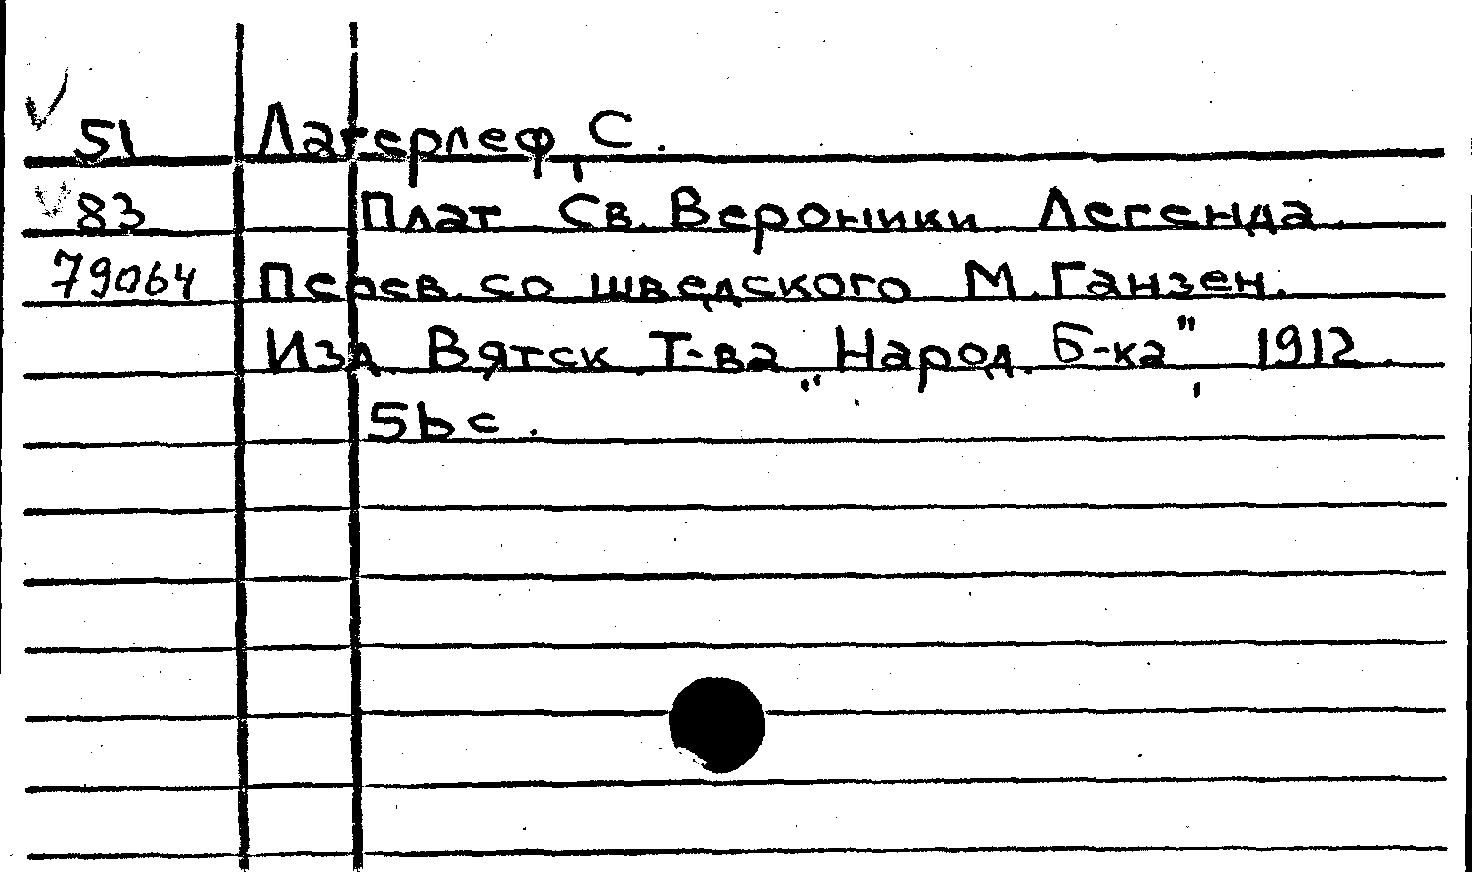 51 Лагерлеф, С.
83 Плат Св. Вероники Легенда.
79064 Перев. со шведского М. Ганзен.
Изд. Вятск. Т-ва „Народ. Б-ка", 1912.
56 с.